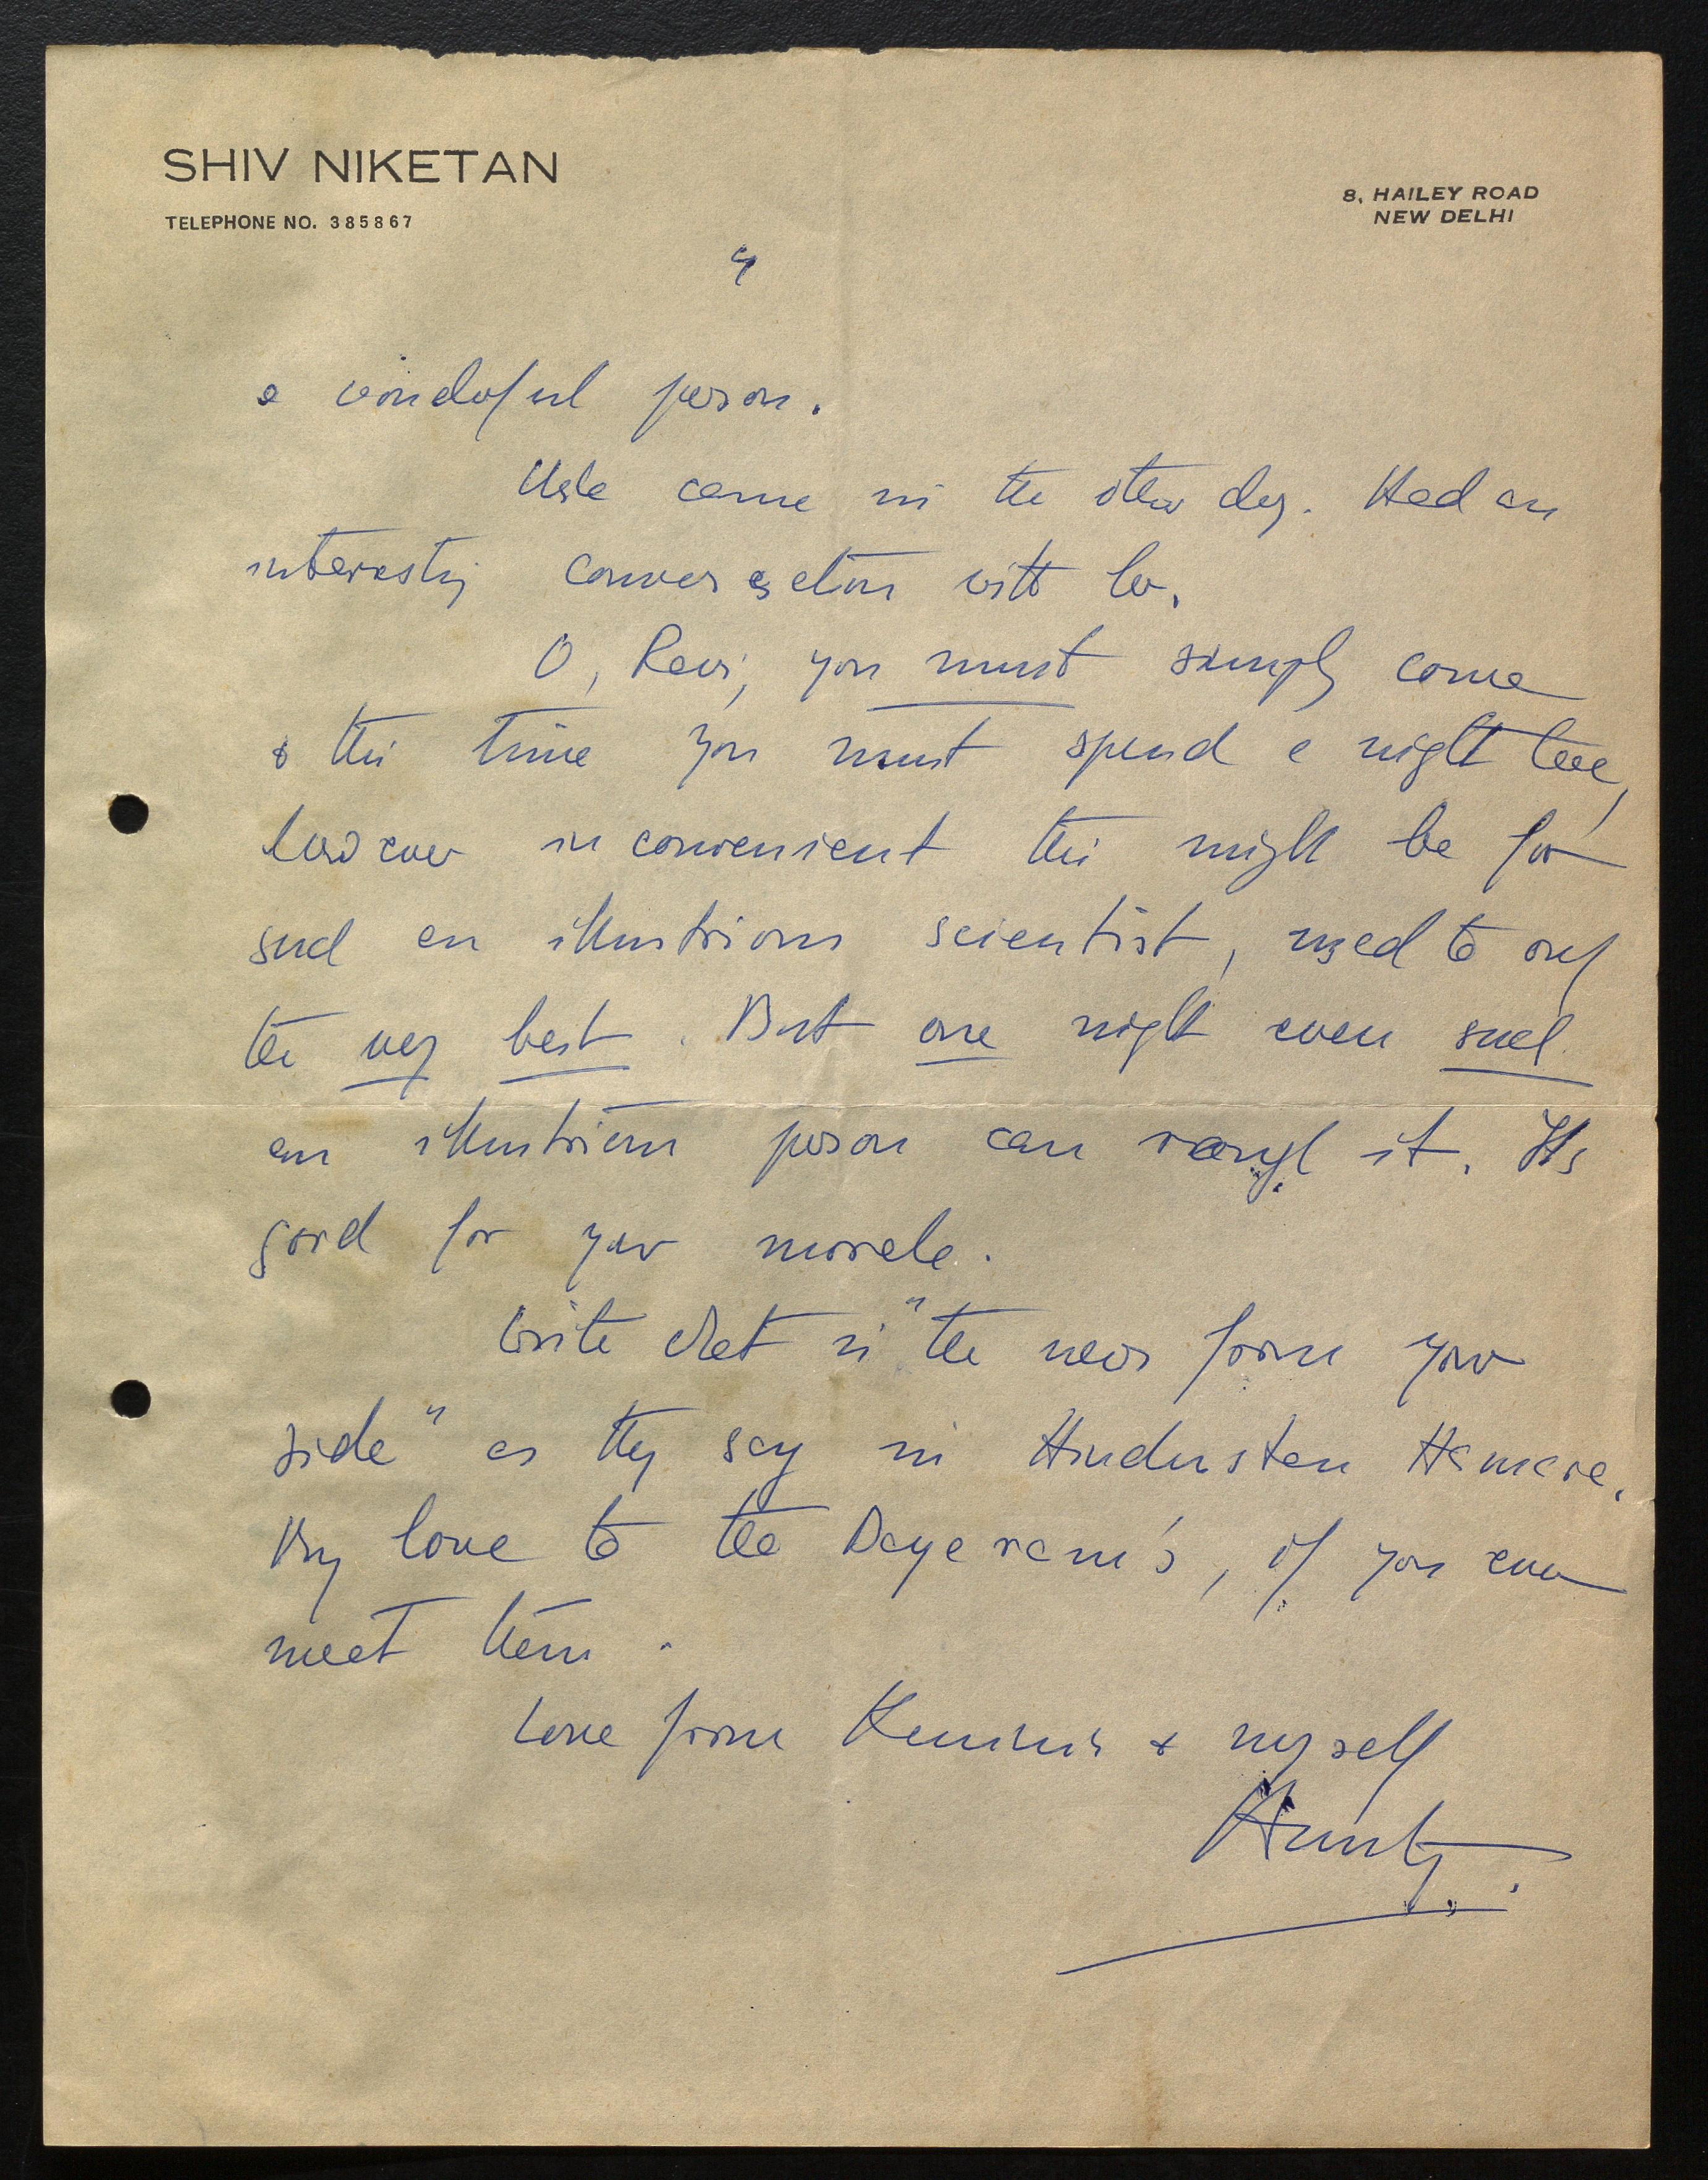 SHIV NIKETAN
TELEPHONE NO. 385867
8, HAILEY ROAD
NEW DELHI
4
a wonderful person.
came in the other day. Had an
interesting conversation with her.
O, Ravi, you must simply come
& this time you must spend a night here,
however inconvenient this might be for
such an illustrious scientist, used to only
the very best. But one night even such
an illustrious person can rough it. Its
good for your morale.
Write what is "the news from your
side" as they say in Hindustan Hamara.
My love to the Dayaram's, if you ever
meet them.
Love from & myself
Aunty.